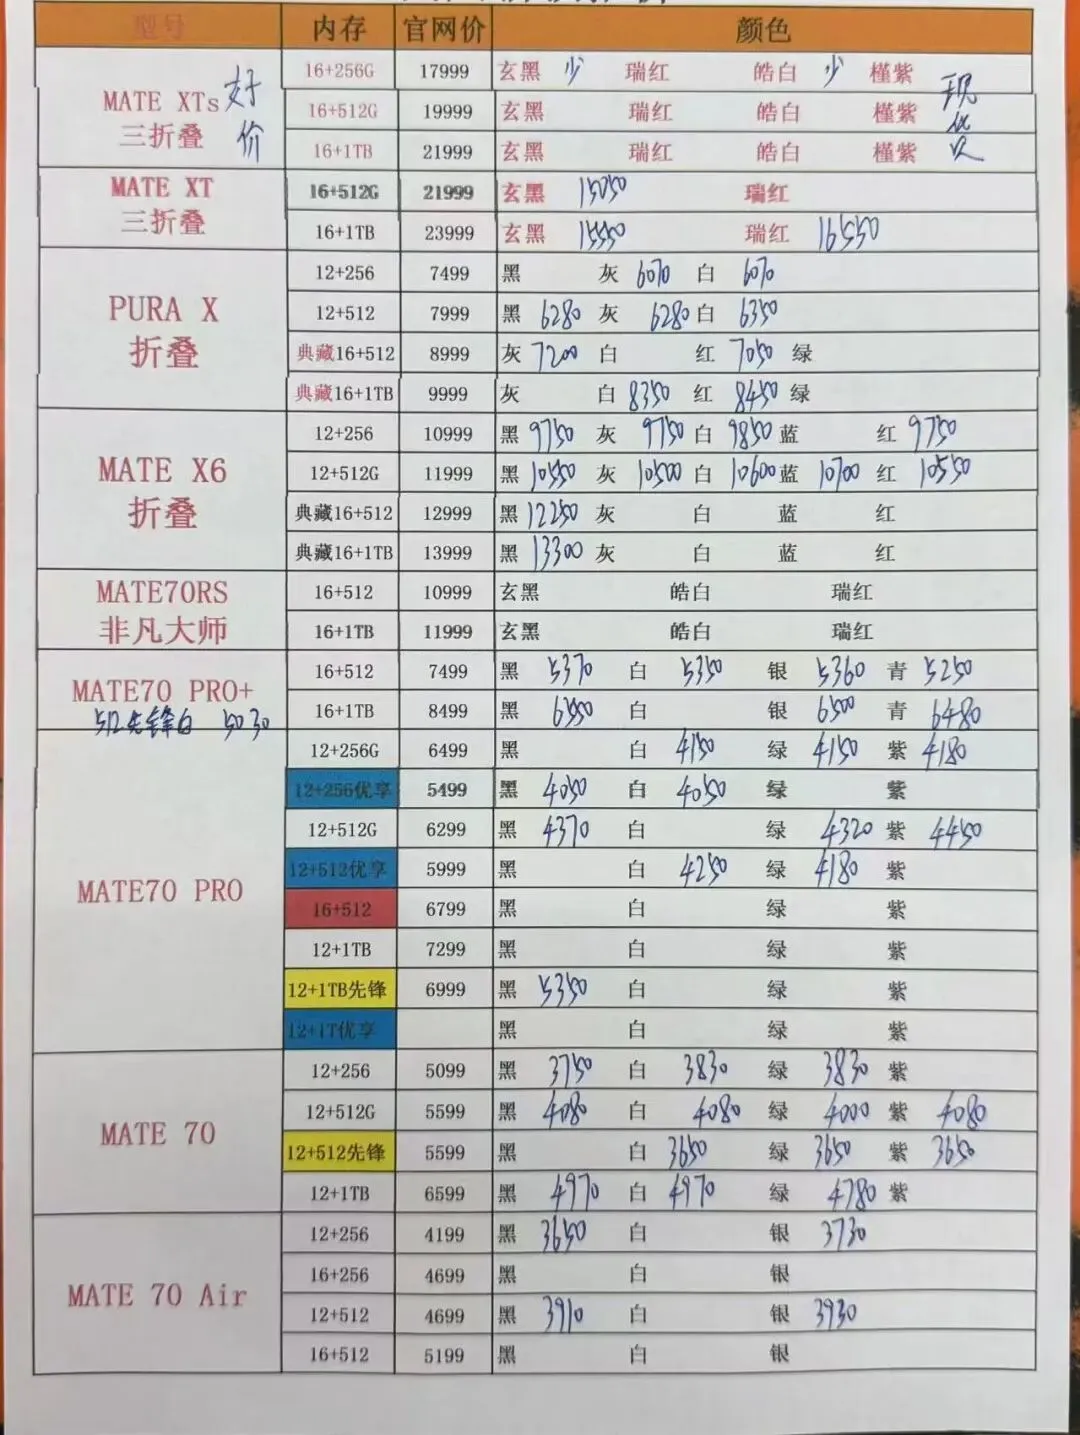 型号 内存 官网价 颜色
16+256G 17999 玄黑 少 瑞红 皓白 少 槿紫
MATE XTs 好价
三折叠
16+512G 19999 玄黑 瑞红 皓白 槿紫 现货
16+1TB 21999 玄黑 瑞红 皓白 槿紫
MATE XT
三折叠
16+512G 21999 玄黑 15050 瑞红
16+1TB 23999 玄黑 15550 瑞红 16550
PURA X
折叠
12+256 7499 黑 灰 6070 白 6070
12+512 7999 黑 6280 灰 6280 白 6350
典藏16+512 8999 灰 7200 白 红 7050 绿
典藏16+1TB 9999 灰 白 8350 红 8450 绿
MATE X6
折叠
12+256 10999 黑 9750 灰 9750 白 9850 蓝 红 9750
12+512G 11999 黑 10550 灰 10500 白 10600 蓝 10700 红 10550
典藏16+512 12999 黑 12250 灰 白 蓝 红
典藏16+1TB 13999 黑 13300 灰 白 蓝 红
MATE70RS
非凡大师
16+512 10999 玄黑 皓白 瑞红
16+1TB 11999 玄黑 皓白 瑞红
MATE70 PRO+
512先锋白 5030
16+512 7499 黑 5370 白 5350 银 5360 青 5250
16+1TB 8499 黑 6550 白 银 6500 青 6480
MATE70 PRO
12+256G 6499 黑 白 4150 绿 4150 紫 4180
12+256优享 5499 黑 4050 白 4050 绿 紫
12+512G 6299 黑 4370 白 绿 4320 紫 4450
12+512优享 5999 黑 白 4250 绿 4180 紫
16+512 6799 黑 白 绿 紫
12+1TB 7299 黑 白 绿 紫
12+1TB先锋 6999 黑 5350 白 绿 紫
12+1T优享 黑 白 绿 紫
MATE 70
12+256 5099 黑 3750 白 3830 绿 3830 紫
12+512G 5599 黑 4080 白 4080 绿 4000 紫 4080
12+512先锋 5599 黑 白 3650 绿 3650 紫 3650
12+1TB 6599 黑 4970 白 4970 绿 4780 紫
MATE 70 Air
12+256 4199 黑 3650 白 银 3730
16+256 4699 黑 白 银
12+512 4699 黑 3910 白 银 3930
16+512 5199 黑 白 银